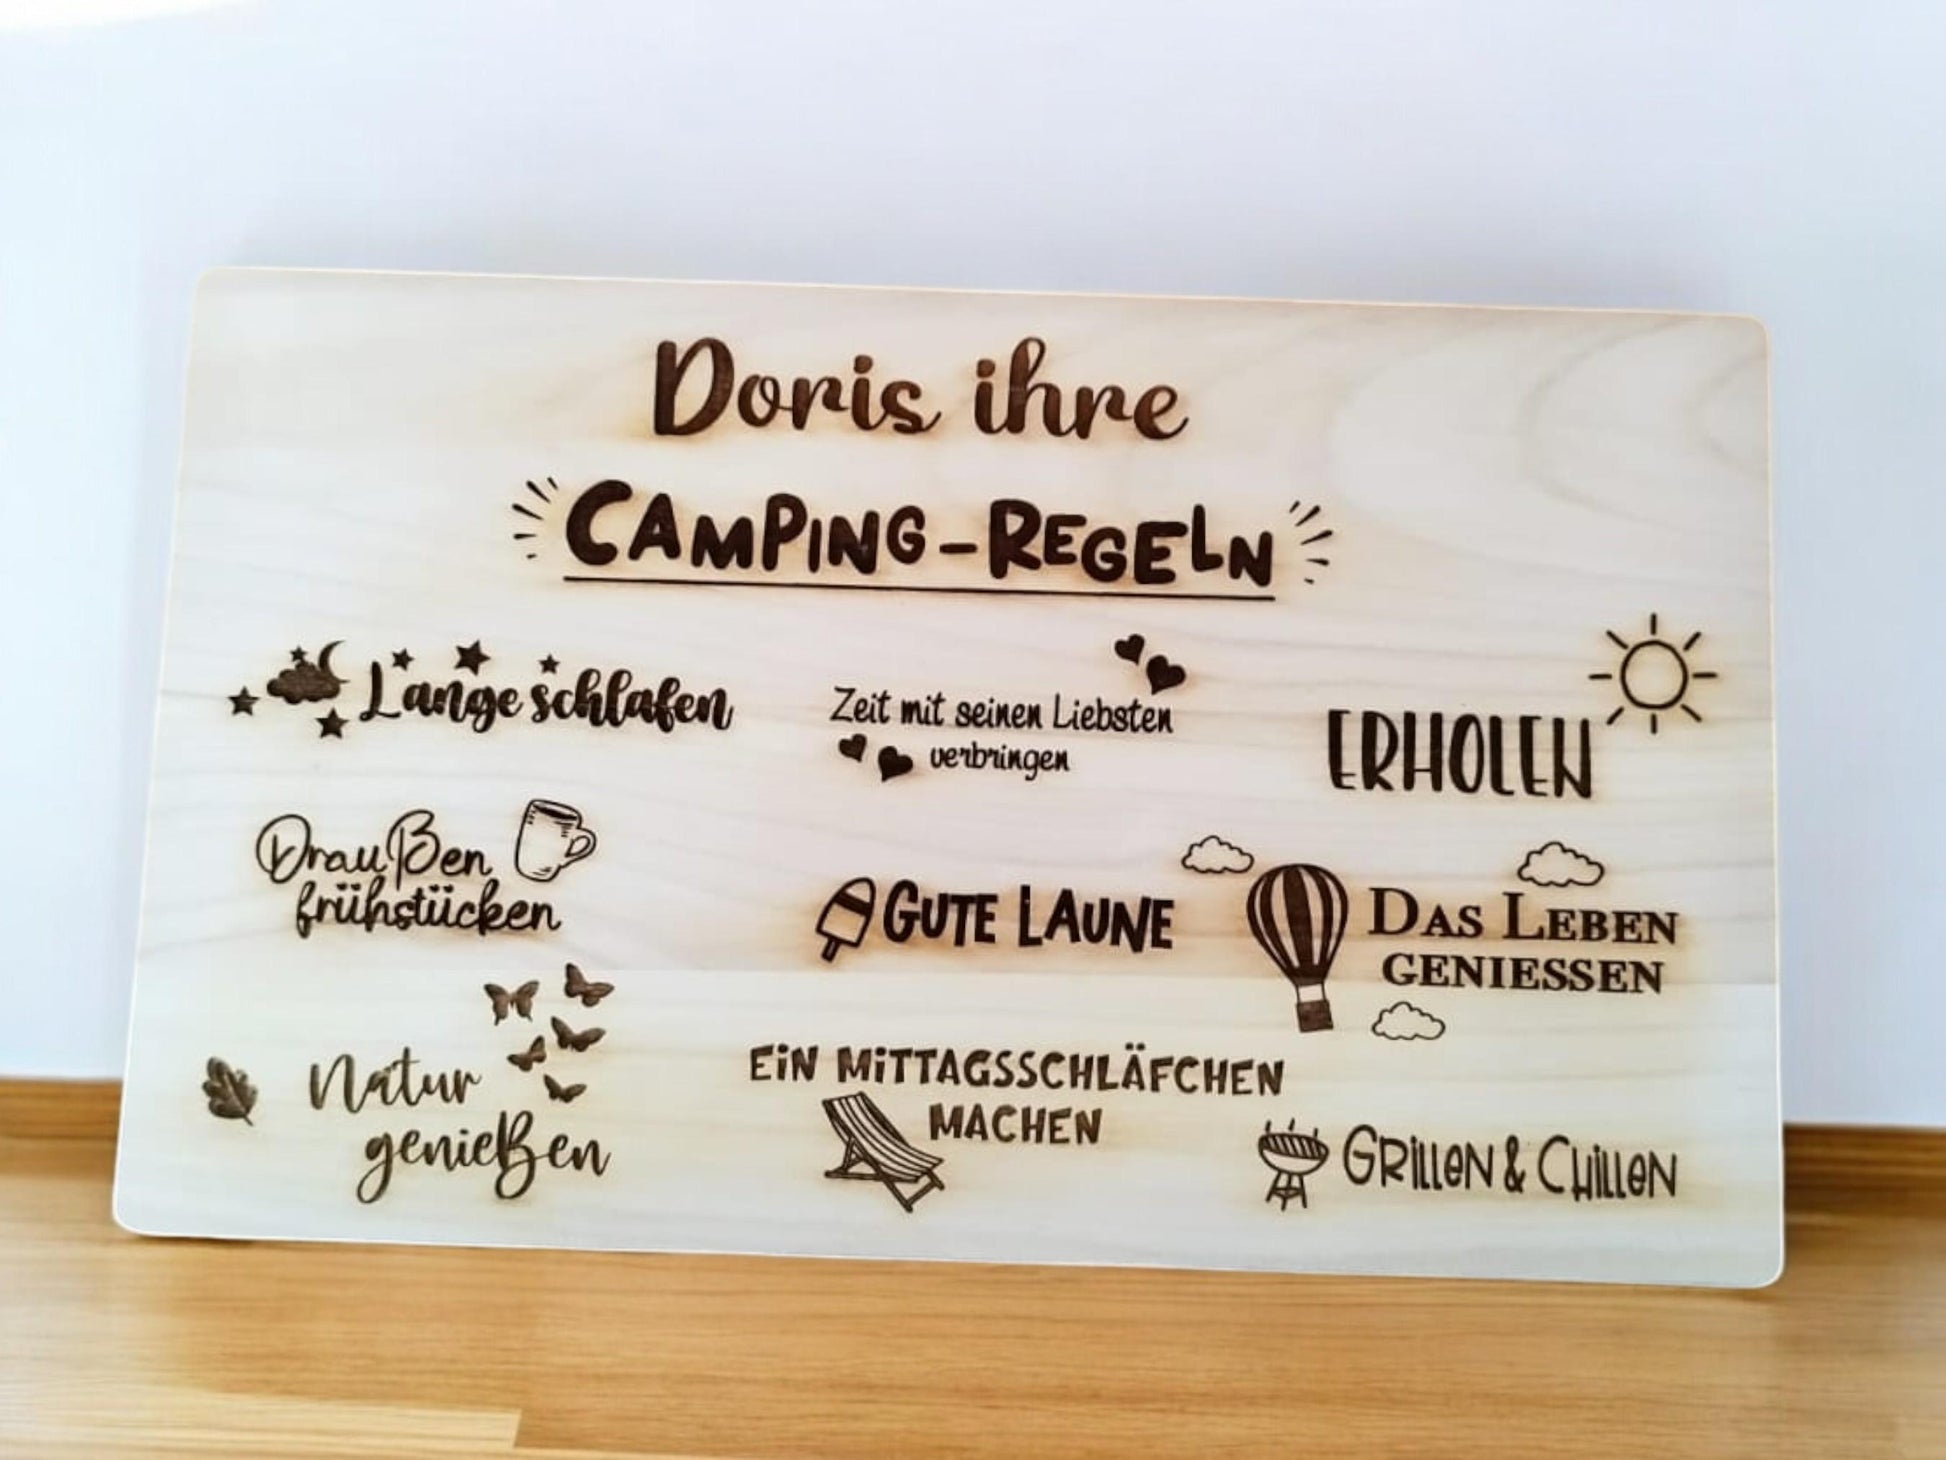 Doris ihre
CAMPING-REGELN
Lange schlafen
Zeit mit seinen Liebsten
verbringen
ERHOLEN
Draußen
frühstücken
GUTE LAUNE
DAS LEBEN
GENIESSEN
Natur
genießen
EIN MITTAGSSCHLÄFCHEN
MACHEN
GRILLEN & CHILLEN